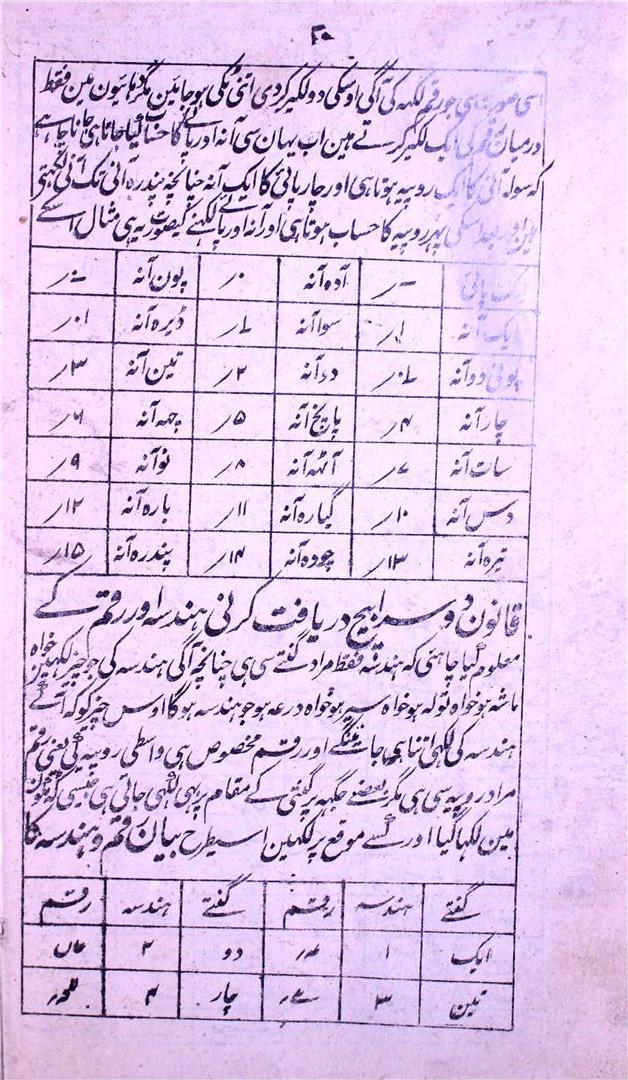 ۲۰
اسی صورت سی جو رقم لکہہ کی آگی اوسکی دو لکیر کر دی اتنی ٹکی ہو جائین مگر دہائیون مین فقط
درمیان رقم کی ایک لکیر کرتے ہین اب یہان سی آنہ اور پائے کا حساب لکہا جاتا ہی جاننا چاہے
کہ سولہ آنی کا ایک روپیہ ہوتا ہی اور چار پائی کا ایک آنہ چنانچہ پندرہ آنی تک آنی لکہتی
ہین اور بعد اسکی پہر روپیہ کا حساب ہوتا ہی اور آنہ اور پائے لکہنے کیصورت یہ ہی مثال اسکے
ایک پائی ؍ آدہ آنہ ۰؍ پون آنہ ؍
ایک آنہ ۱؍ سوا آنہ ؍ ڈیرہ آنہ ؍
پونی دو آنہ ؍ دو آنہ ۲؍ تین آنہ ۳؍
چار آنہ ۴؍ پانچ آنہ ۵؍ چہہ آنہ ۶؍
سات آنہ ۷؍ آٹہہ آنہ ۸؍ نو آنہ ۹؍
دس آنہ ۱۰؍ گیارہ آنہ ۱۱؍ بارہ آنہ ۱۲؍
تیرہ آنہ ۱۳؍ چودہ آنہ ۱۴؍ پندرہ آنہ ۱۵؍
قانون دوسرا بیچ دریافت کرنی ہندسہ اور رقم کے
معلوم کیا چاہئی کہ ہندسہ فقط مراد گنتے سی ہی چنانچہ آگی ہندسہ کی جو چیز لکہین خواہ
ماشہ ہو خواہ تولہ ہو خواہ سیر ہو خواہ درعہ ہو جو ہندسہ ہوگا اوس چیز کو کہ آگے
ہندسہ کی لکہی اتنا ہی جانینگے اور رقم مخصوص ہی واسطی روپیہ کی یعنی رقم
مراد روپیہ سی ہی مگر بعضے جگہہ پر گنتی کے مقام پر بہی لکہی جاتی ہی جیسی کہ
مین لکہا گیا اور کسے موقع پر لکہین اسیطرح بیان رقم و ہندسہ کا
گنتے ہندسہ رقم گنتے ہندسہ رقم
ایک ۱ دو ۲
تین ۳ چار ۴